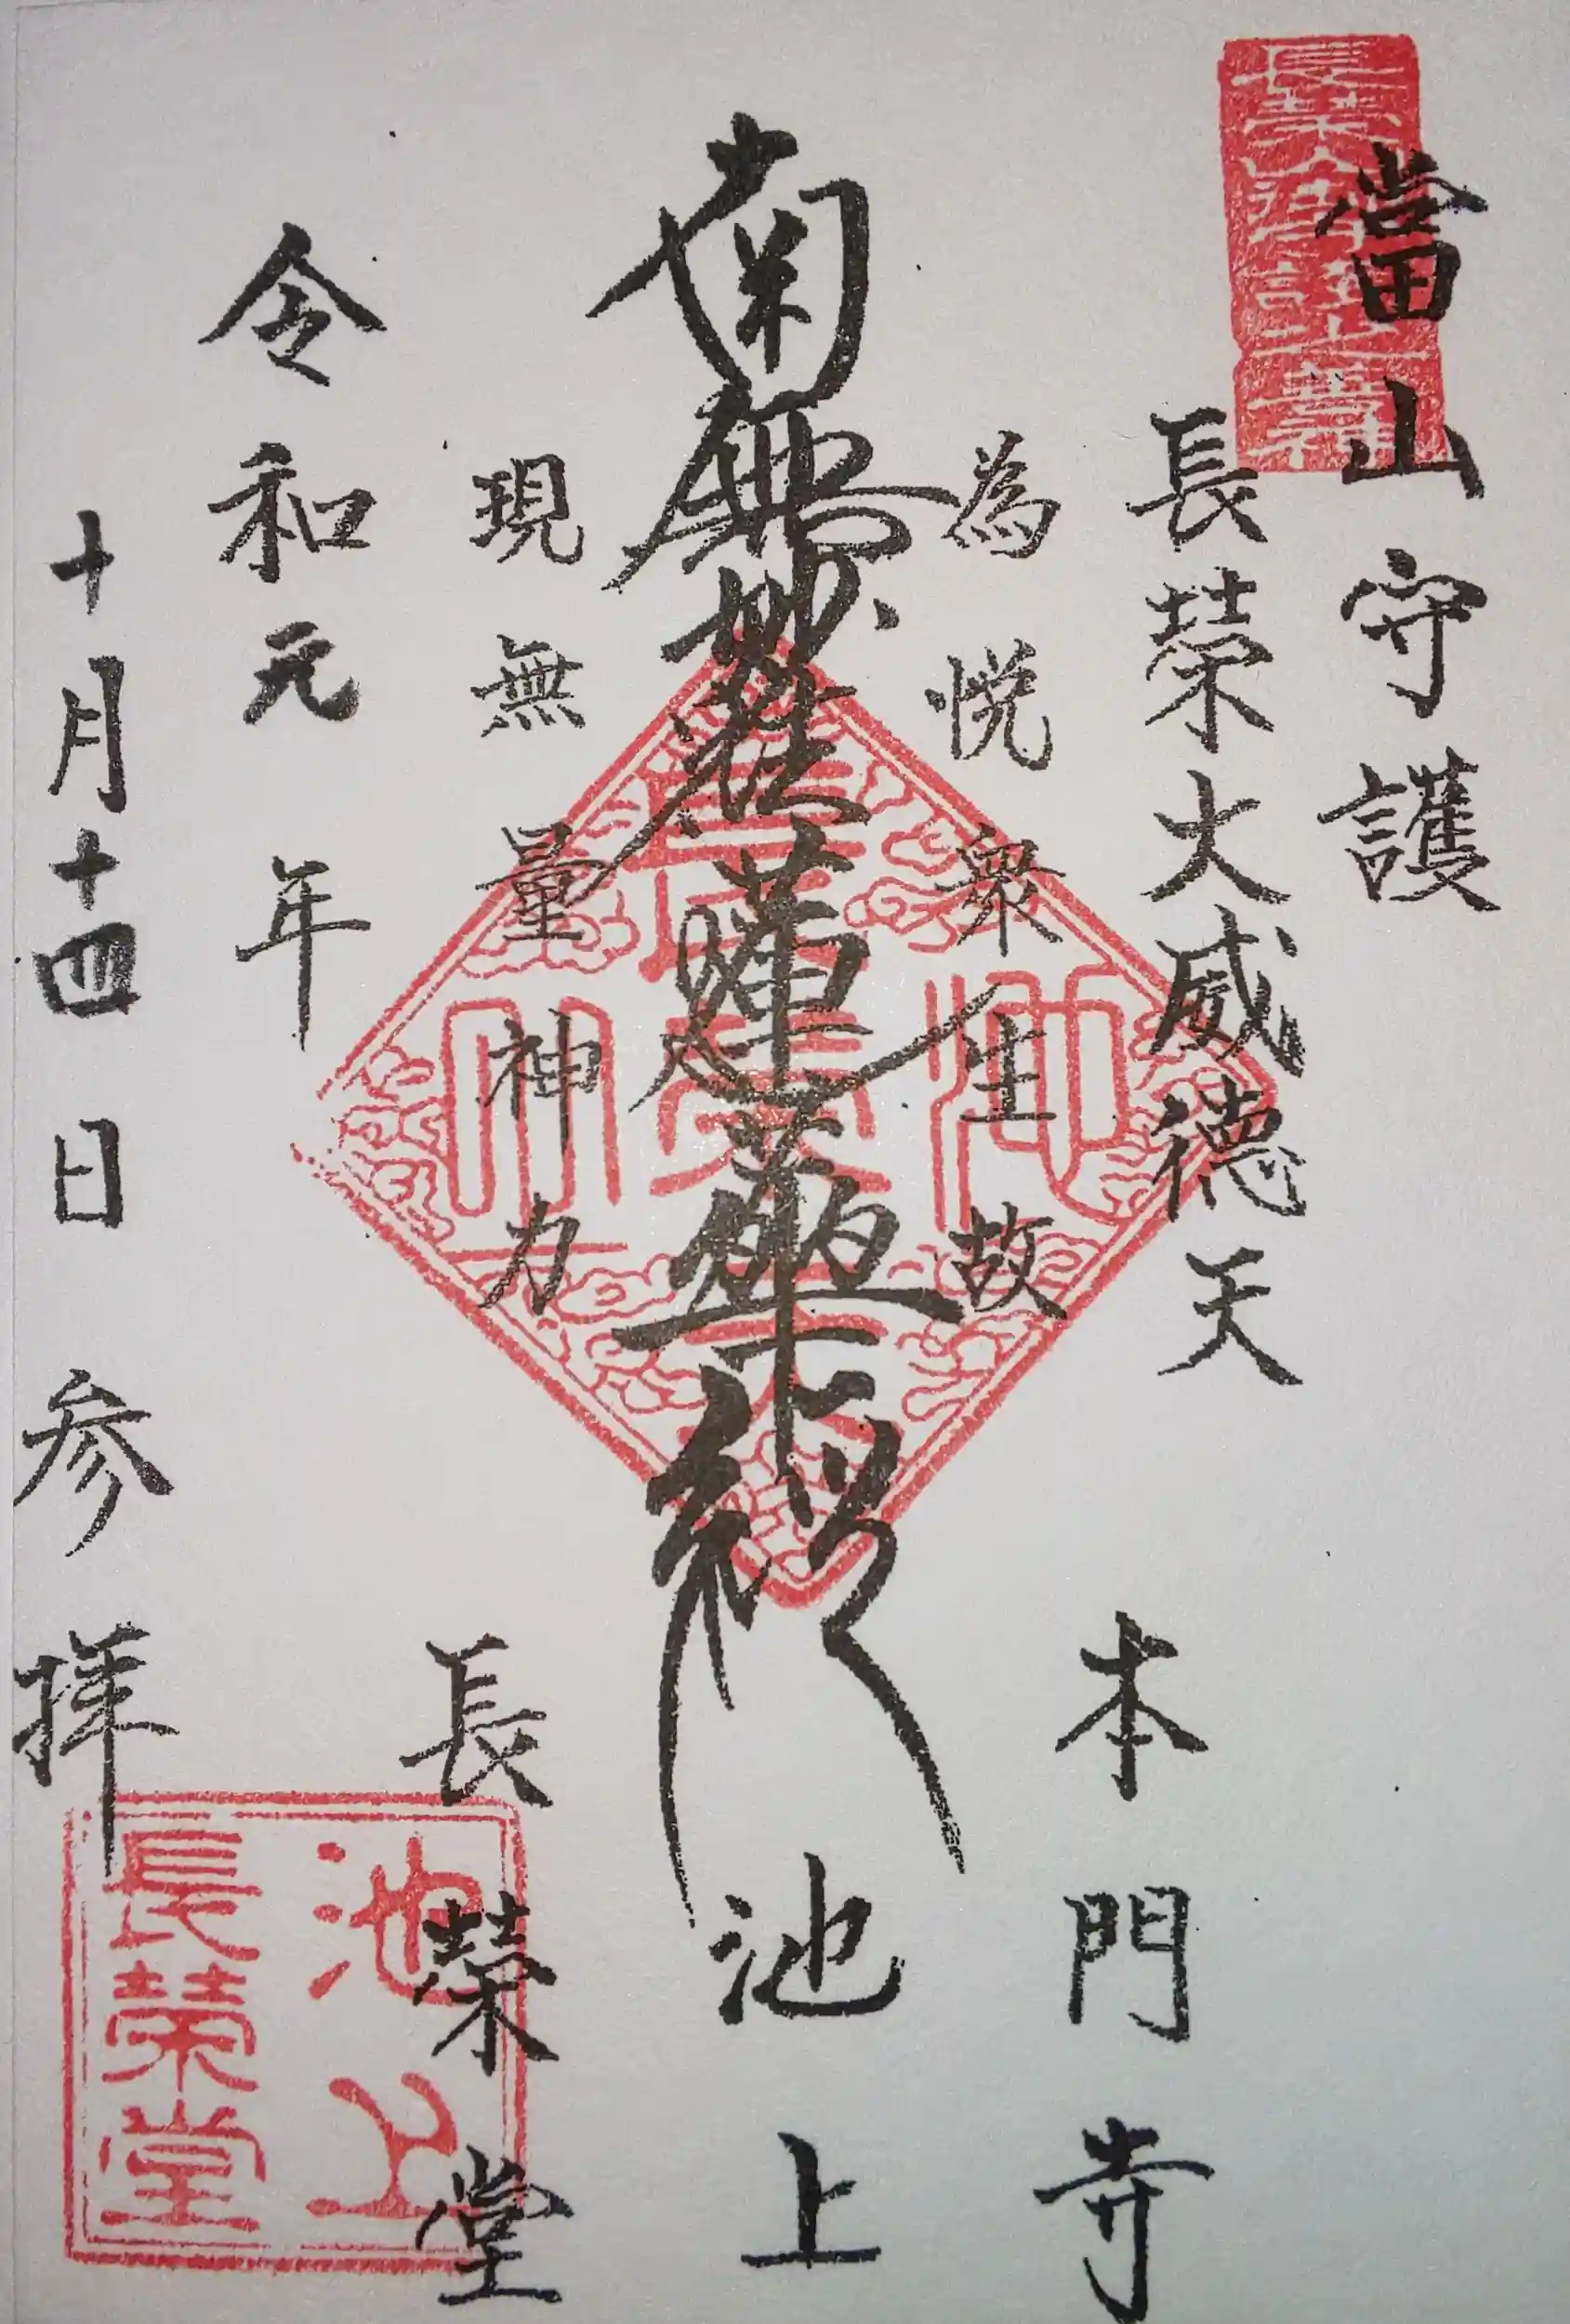 當山守護
長榮大威徳天
為悦衆生故
本門寺
南無妙法蓮華経
池上
現無量神力
長榮堂
令和元年
十月十四日参拝
池上
長榮堂